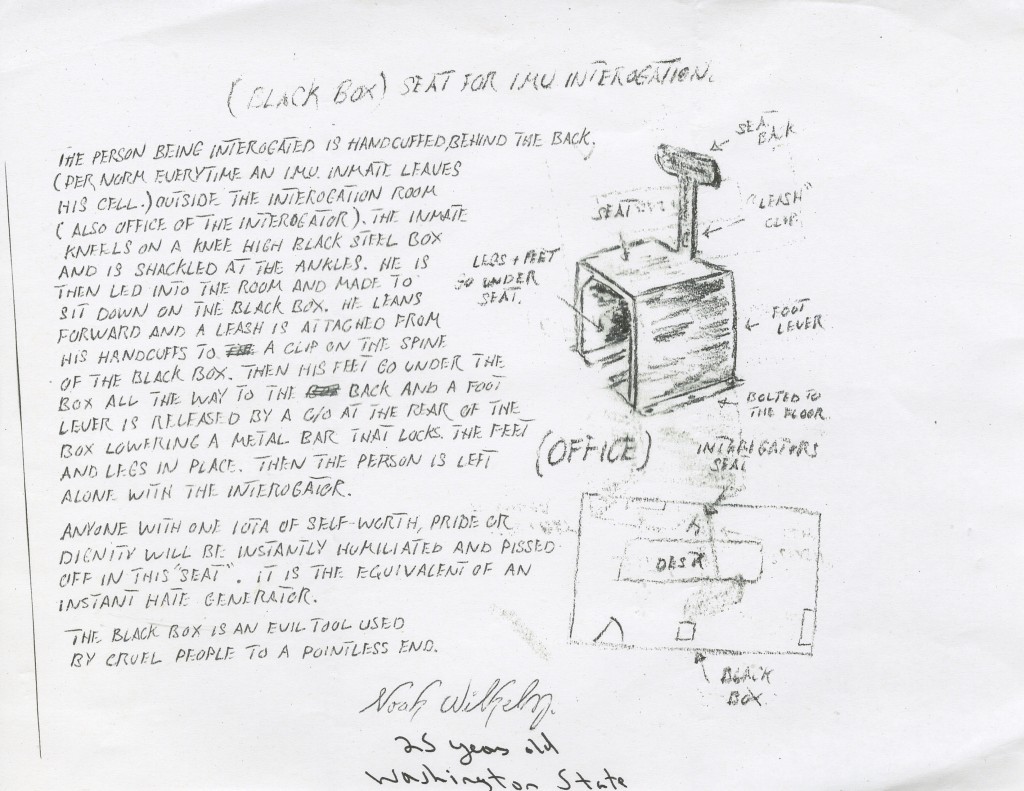 (BLACK BOX) SEAT FOR I.M.U. INTEROGATION.
THE PERSON BEING INTEROGATED IS HANDCUFFED, BEHIND THE BACK.
(PER NORM EVERYTIME AN I.M.U. INMATE LEAVES
HIS CELL.) OUTSIDE THE INTEROGATION ROOM
(ALSO OFFICE OF THE INTEROGATOR). THE INMATE
KNEELS ON A KNEE HIGH BLACK STEEL BOX
AND IS SHACKLED AT THE ANKLES. HE IS
THEN LED INTO THE ROOM AND MADE TO
SIT DOWN ON THE BLACK BOX. HE LEANS
FORWARD AND A LEASH IS ATTACHED FROM
HIS HANDCUFFS TO A CLIP ON THE SPINE
OF THE BLACK BOX. THEN HIS FEET GO UNDER THE
BOX ALL THE WAY TO THE BACK AND A FOOT
LEVER IS RELEASED BY A C/O AT THE REAR OF THE
BOX LOWERING A METAL BAR THAT LOCKS. THE FEET
AND LEGS IN PLACE. THEN THE PERSON IS LEFT
ALONE WITH THE INTEROGATOR.
ANYONE WITH ONE IOTA OF SELF-WORTH, PRIDE OR
DIGNITY WILL BE INSTANTLY HUMILIATED AND PISSED
OFF IN THIS "SEAT". IT IS THE EQUIVALENT OF AN
INSTANT HATE GENERATOR.
THE BLACK BOX IS AN EVIL TOOL USED
BY CRUEL PEOPLE TO A POINTLESS END.
SEAT
BACK
SEAT
"LEASH"
CLIP
LEGS + FEET
GO UNDER
SEAT.
FOOT
LEVER
BOLTED TO
THE FLOOR.
(OFFICE)
INTERIGATORS
SEAT
DESK
BLACK
BOX
Noah
25 years old
Washington State